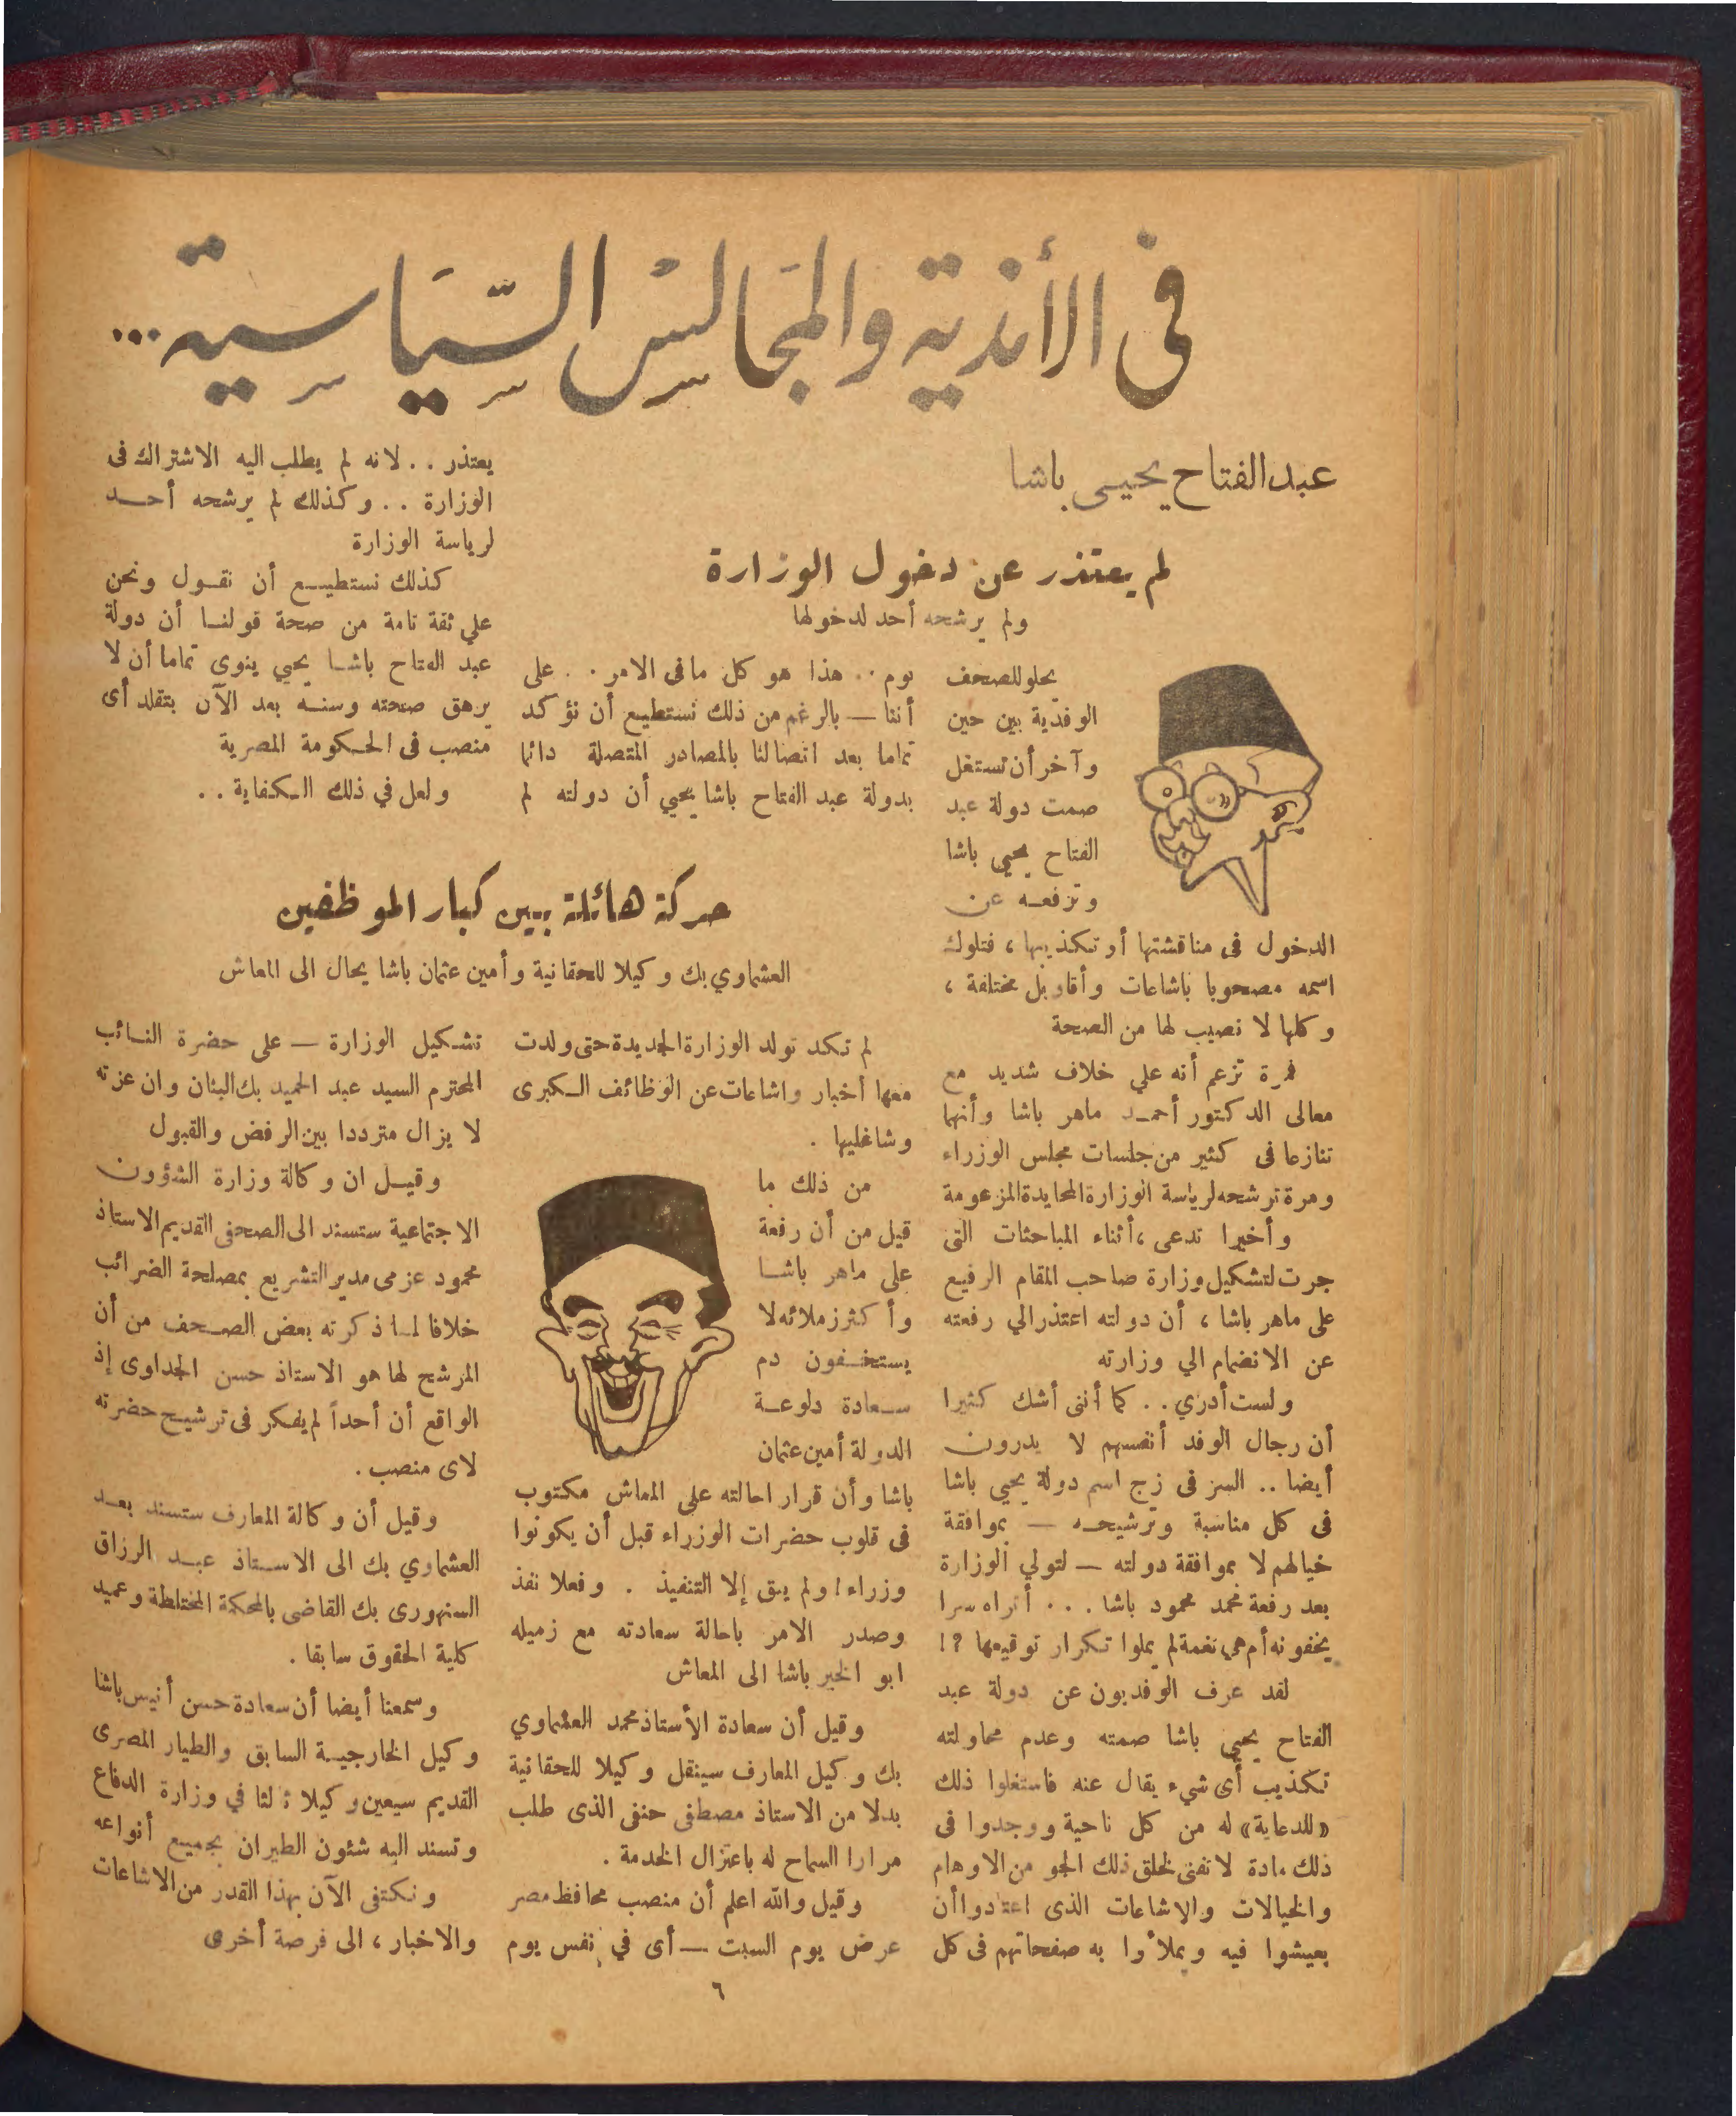 في الأندية والمجالس السياسية...
عبد الفتاح يحيى باشا
لم يعتذر عن دخول الوزارة
ولم يرشحه أحد لدخولها
يحلو للصحف
الوفدية بين حين
وآخر أن تستغل
صمت دولة عبد
الفتاح يحيى باشا
وترفعه عن
الدخول فى مناقشتها أو تكذيبها ، فتلوك
اسمه مصحوبا باشاعات وأقاويل مختلفة ،
وكلها لا نصيب لها من الصحة
فمرة تزعم أنه علي خلاف شديد مع
معالى الدكتور أحمد ماهر باشا وأنهما
تنازعا فى كثير من جلسات مجلس الوزراء
ومرة ترشحه لرياسة الوزارة المحايدة المزعومة
وأخيرا تدعى ، أثناء المباحثات التى
جرت لتشكيل وزارة صاحب المقام الرفيع
على ماهر باشا ، أن دولته اعتذر الي رفعته
عن الانضمام الي وزارته
ولست أدري . . كما أننى أشك كثيرا
أن رجال الوفد أنفسهم لا يدرون
أيضا . . السر فى زج اسم دولة يحيى باشا
فى كل مناسبة وترشيحه — بموافقة
خيالهم لا بموافقة دولته — لتولي الوزارة
بعد رفعة محمد محمود باشا . . . أتراه سرا
يخفونه أم هي نغمة لم يملوا تكرار توقيعها ؟!
لقد عرف الوفديون عن دولة عبد
الفتاح يحيى باشا صمته وعدم محاولته
تكذيب أى شيء يقال عنه فاستغلوا ذلك
«للدعاية» له من كل ناحية ووجدوا فى
ذلك مادة لا تفنى لخلق ذلك الجو من الاوهام
والخيالات والاشاعات الذى اعتادوا أن
يعيشوا فيه ويملأوا به صفحاتهم فى كل
يوم . . هذا هو كل ما فى الامر . . على
أننا — بالرغم من ذلك نستطيع أن نؤكد
تماما بعد اتصالنا بالمصادر المتصلة دائما
بدولة عبد الفتاح باشا يحيي أن دولته لم
يعتذر . . لانه لم يطلب اليه الاشتراك فى
الوزارة . . وكذلك لم يرشحه أحد
لرياسة الوزارة
كذلك نستطيع أن نقول ونحن
علي ثقة تامة من صحة قولنا أن دولة
عبد الفتاح باشا يحيي ينوى تماما أن لا
يرهق صحته وسنه بعد الآن بتقلد أى
منصب فى الحكومة المصرية
ولعل في ذلك الكفاية . .
حركة هائلة بين كبار الموظفين
العشماوي بك وكيلا للحقانية وأمين عثمان باشا يحال الى المعاش
لم تكد تولد الوزارة الجديدة حتى ولدت
معها أخبار واشاعات عن الوظائف الكبرى
وشاغليها .
من ذلك ما
قيل من أن رفعة
على ماهر باشا
وأكثر زملائه لا
يستخفون دم
سعادة دلوعة
الدولة أمين عثمان
باشا وأن قرار احالته على المعاش مكتوب
فى قلوب حضرات الوزراء قبل أن يكونوا
وزراء ! ولم يبق إلا التنفيذ . وفعلا نفذ
وصدر الامر باحالة سعادته مع زميله
ابو الخير باشا الى المعاش
وقيل أن سعادة الأستاذ محمد العشماوي
بك وكيل المعارف سينقل وكيلا للحقانية
بدلا من الاستاذ مصطفى حنفى الذى طلب
مرارا السماح له باعتزال الخدمة .
وقيل والله اعلم أن منصب محافظ مصر
عرض يوم السبت — أى في نفس يوم
تشكيل الوزارة — على حضرة النائب
المحترم السيد عبد الحميد بك البنان وان عزته
لا يزال مترددا بين الرفض والقبول
وقيل ان وكالة وزارة الشؤون
الاجتماعية ستسند الى الصحفى القديم الاستاذ
محمود عزمى مدير التشريع بمصلحة الضرائب
خلافا لما ذكرته بعض الصحف من أن
المرشح لها هو الاستاذ حسن الجداوى إذ
الواقع أن أحداً لم يفكر فى ترشيح حضرته
لاى منصب .
وقيل أن وكالة المعارف ستسند بعد
العشماوي بك الى الاستاذ عبد الرزاق
السنهورى بك القاضى بالمحكمة المختلطة وعميد
كلية الحقوق سابقا .
وسمعنا أيضا أن سعادة حسن أنيس باشا
وكيل الخارجية السابق والطيار المصرى
القديم سيعين وكيلا ثالثا في وزارة الدفاع
وتسند اليه شئون الطيران بجميع أنواعه
ونكتفى الآن بهذا القدر من الاشاعات
والاخبار ، الى فرصة أخرى
٦